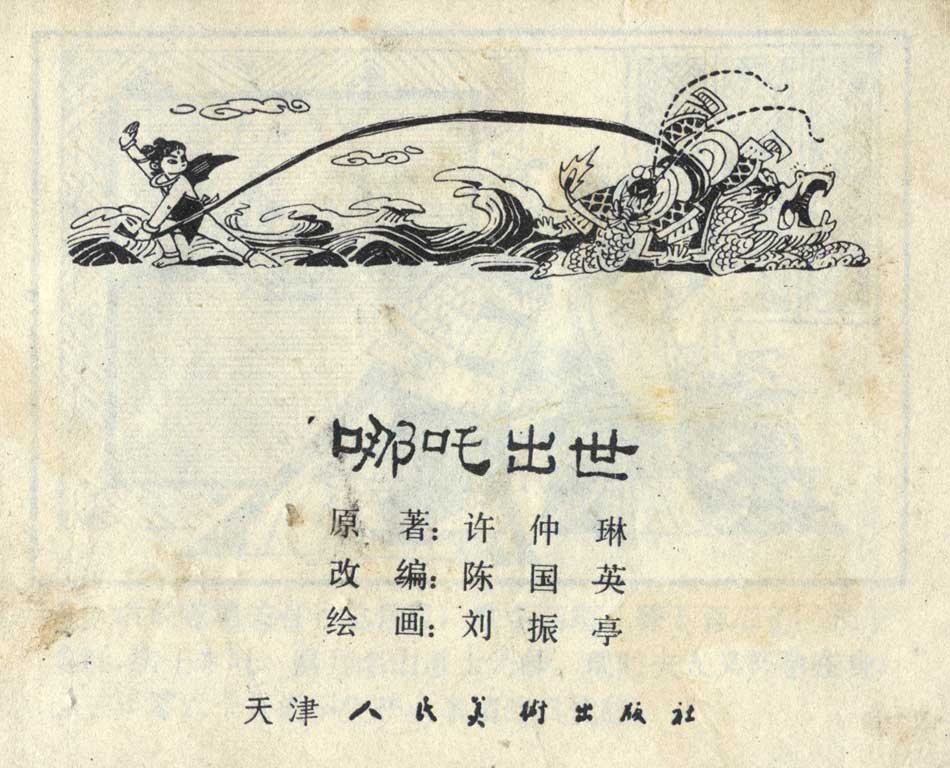 哪吒出世
原 著：许 仲 琳
改 编：陈 国 英
绘 画：刘 振 亭
天津人民美術出版社